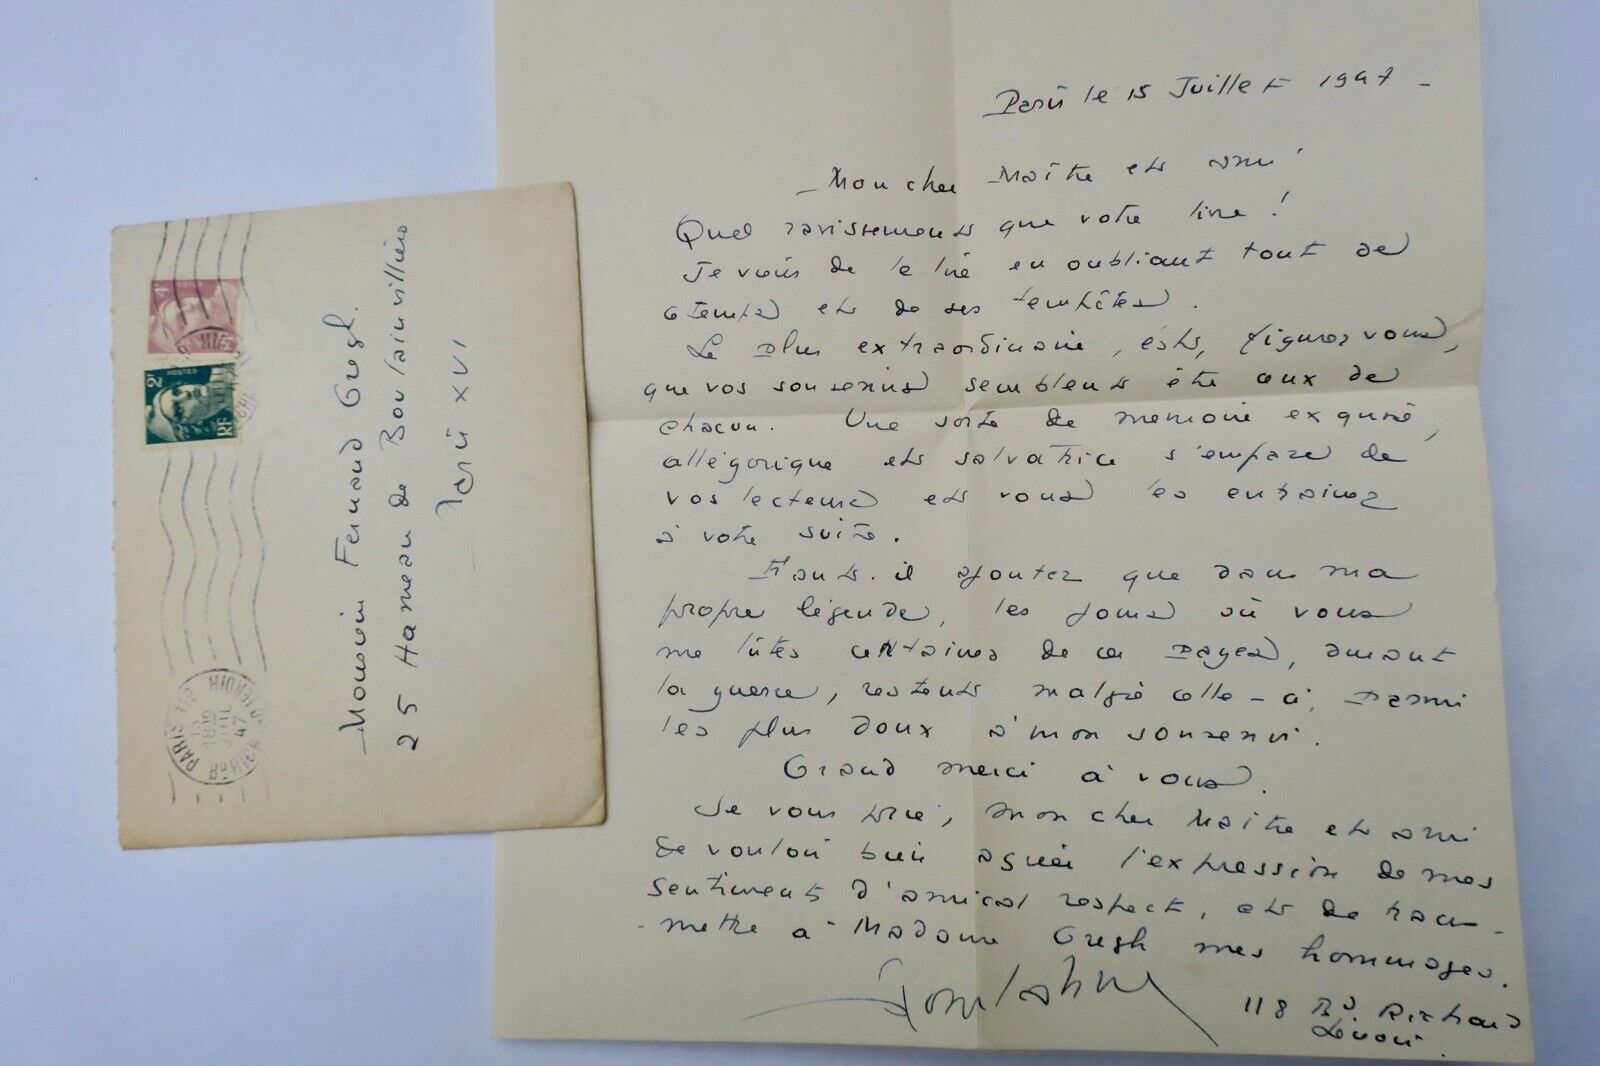 Paris le 15 Juillet 1947 -
Mon cher Maître et ami
Quel ravissement que votre livre !
Je viens de le lire en oubliant tout de
ce temps et de ses tempêtes.
Le plus extraordinaire, est, figurez vous,
que vos souvenirs semblent être ceux de
chacun. Une sorte de mémoire exquise,
allégorique et salvatrice s'empare de
vos lecteurs et vous les entrainez
à votre suite.
Faut-il ajouter que dans ma
propre légende, les jours où vous
me lûtes certaines de ces pages, durant
la guerre, restent malgré celle-ci, parmi
les plus doux à mon souvenir.
Grand merci à vous.
Je vous prie, mon cher Maître et ami
de vouloir bien agréer l'expression de mes
sentiments d'amical respect, et de trans-
-mettre à Madame Gregh mes hommages.
118 Bd Richard
Lenoir.
Monsieur Fernand Gregh.
25 Hameau de Boulainvilliers
Paris XVI
POSTES
2F
RF
PARIS 118
15
JUIL
47